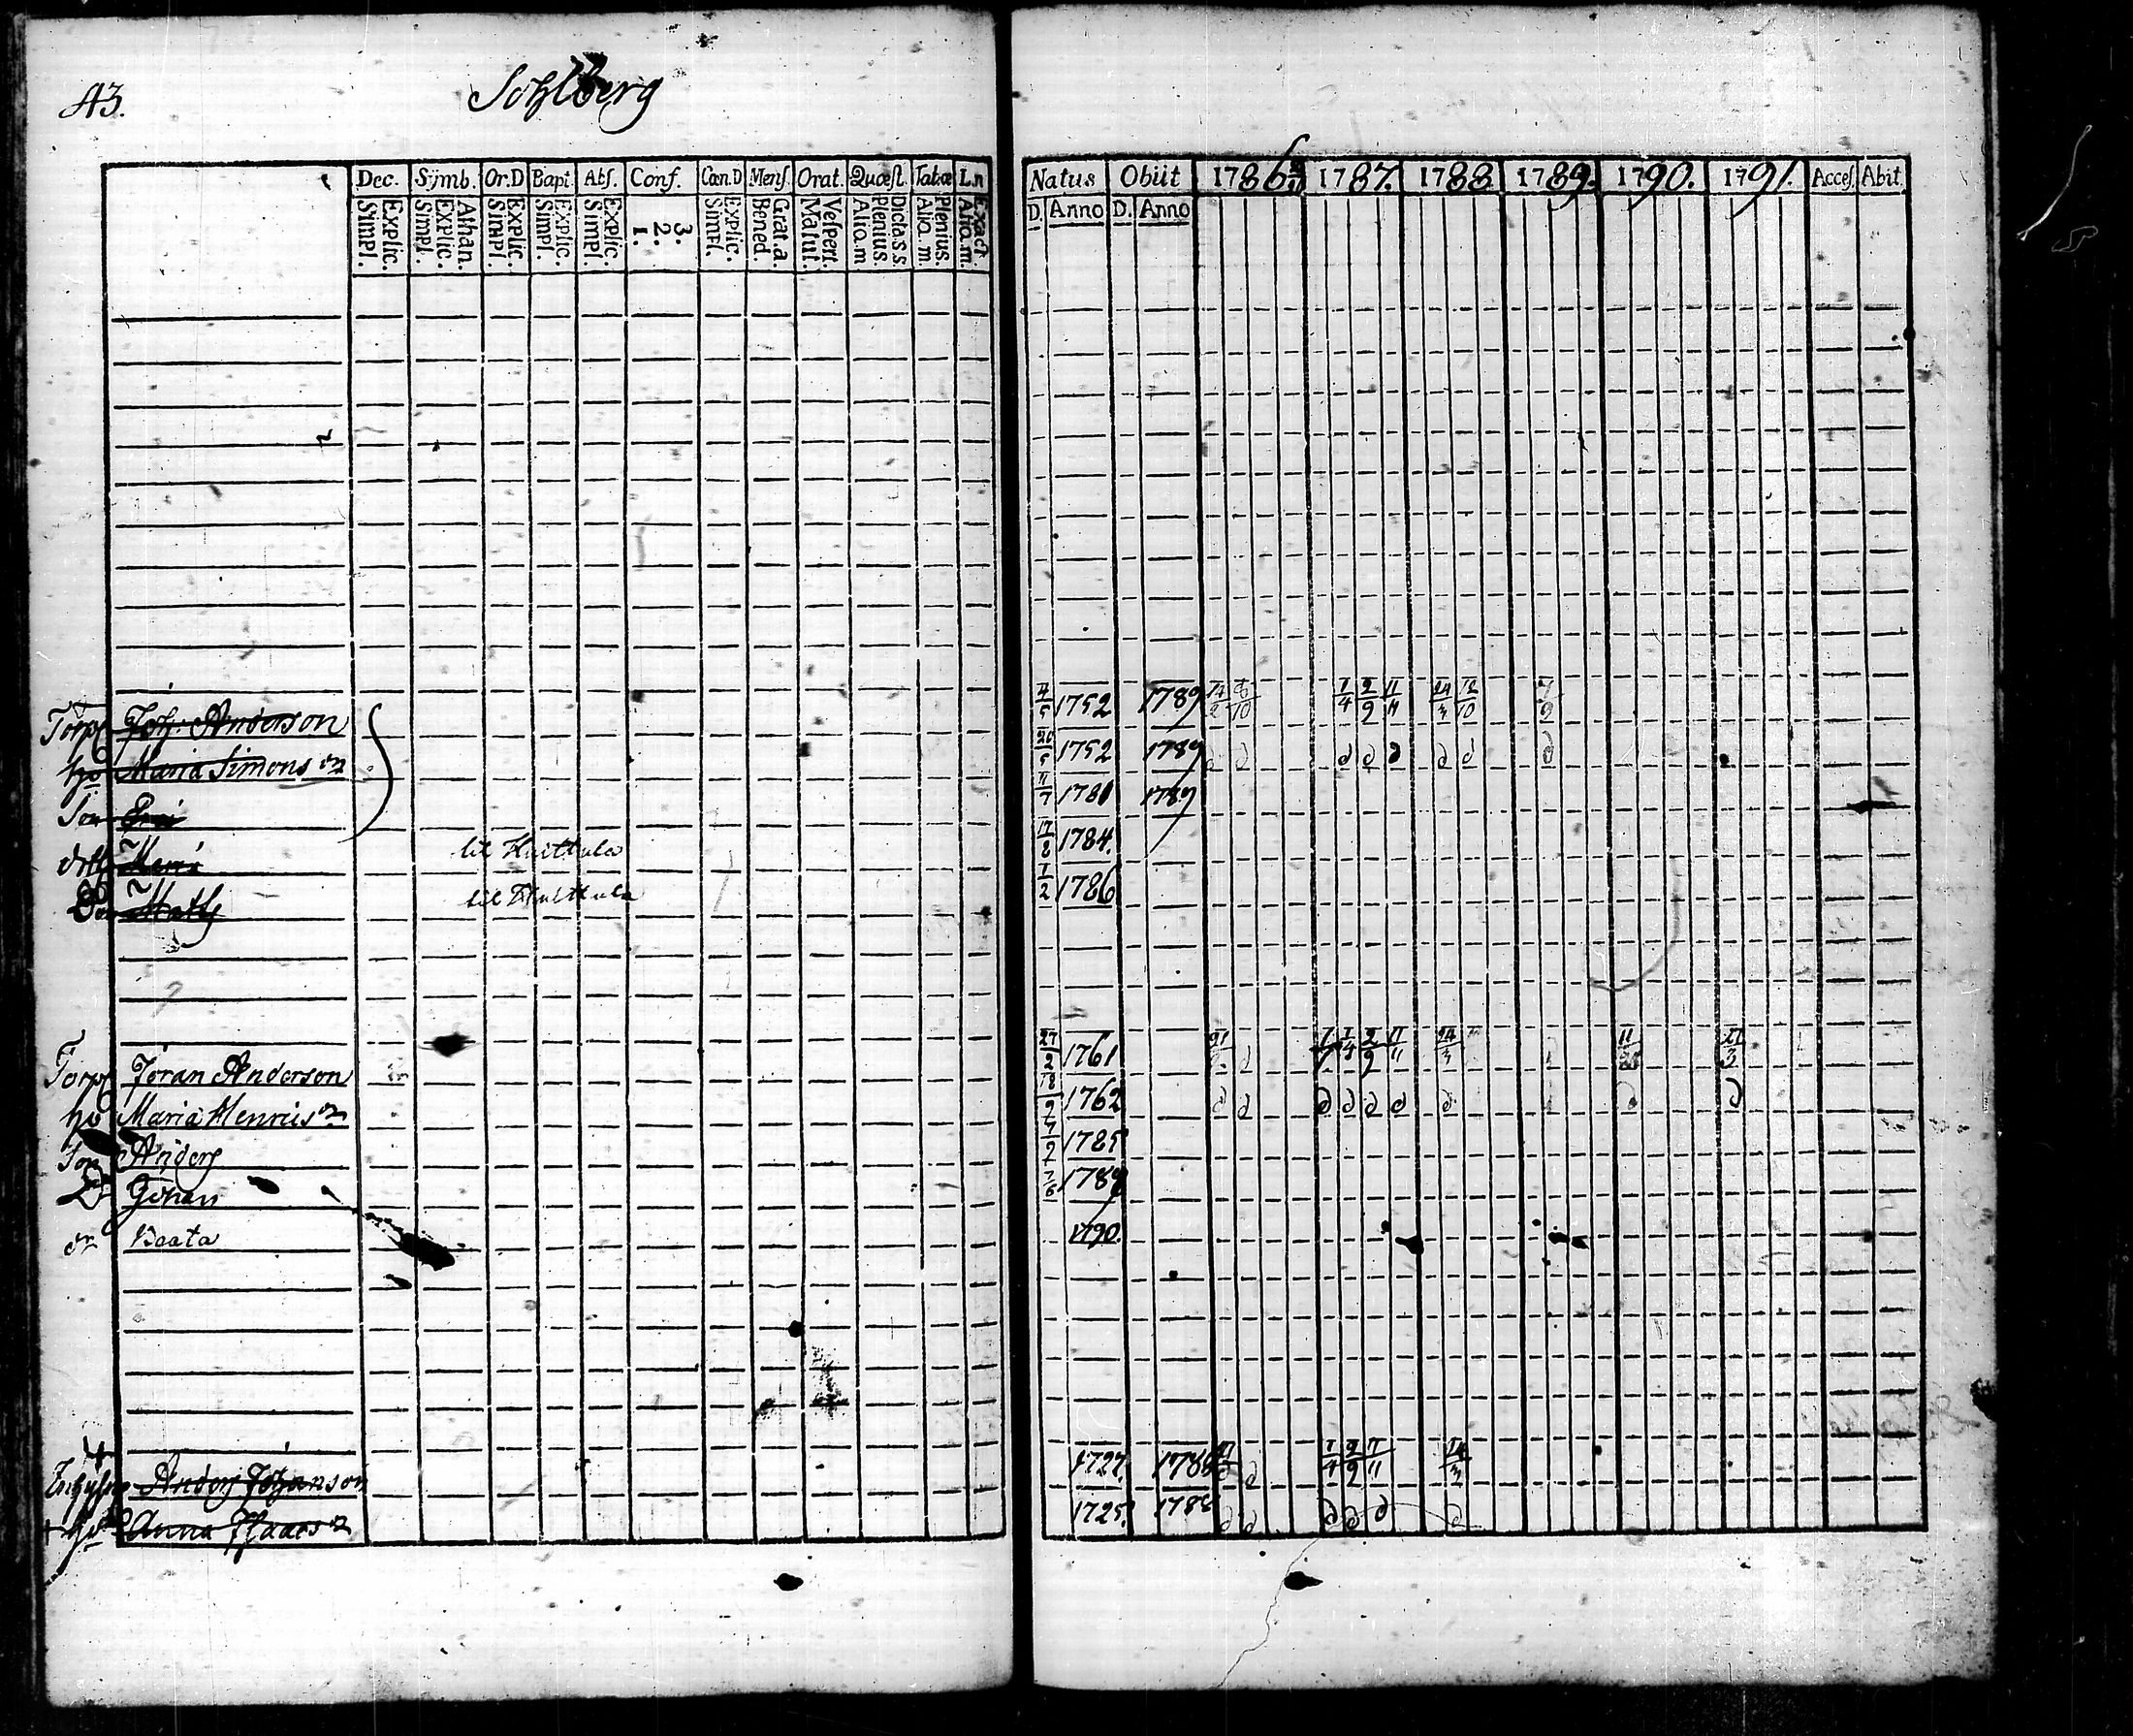 43.
Sohlberg
Dec. Symb. Or.D Bapt. Abs. Conf. Cœn.D Mens. Orat. Quæst. Tabæ L.n
Explic. Simpl. Athan. Explic. Simpl. Explic. Simpl. Explic. Simpl. Explic. Simpl. 3. 2. 1. Explic. Simpl. Grat.a. Bened. Vespert. Matut. Dicta.s.s. Plenius. Alio.m Plenius. Alio.m. Exact. Alio.m.
Natus Obiit 1786 1787. 1788 1789. 1790. 1791. Acces. Abit.
D. Anno D. Anno
Torp Joh: Anderson 4/5 1752 1789 7/4 2/9 11/11 24/3 12/10 7/9
hu Maria Simonsdr 20/5 1752 1789 d d d d d d d d
Son 11/7 1781 1789
dottr Maria til Huittula 17/8 1784.
Son Matts til Huittula 1/2 1786
Torp Jöran Anderson 27/2 1761 7/4 2/9 11/11 24/3 27/3
hu Maria Henricsdr 18/9 1762 d d d d d d d d d
Son Anders 7/2 1785
Johan 7/6 1789
dr Beata 1790.
Inhyses Anders Johanson 1727. 1788 7/4 2/9 11/11 24/3
hu Anna Isaacsdr 1725. 1788 d d d d d d